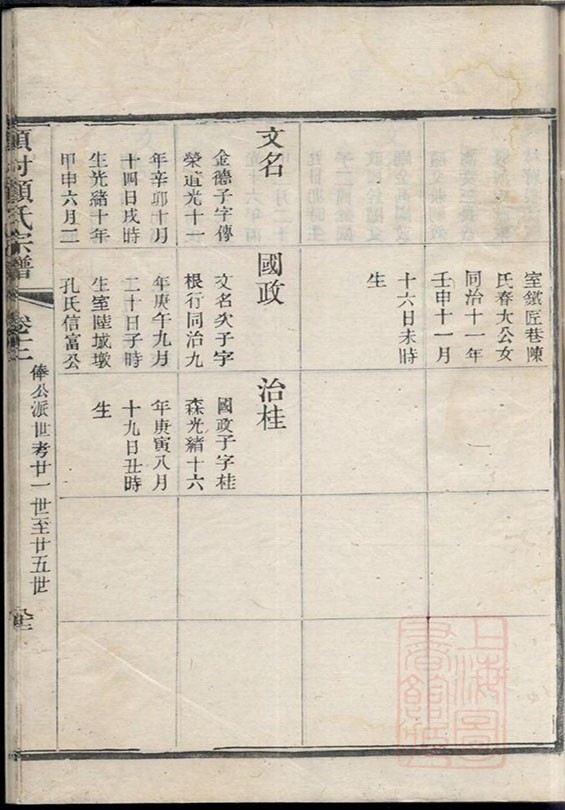 室鐵匠巷陳
氏春大公女
同治十一年
壬申十一月
十六日未時
生
文名
金德子字傳
榮道光十一
年辛卯十月
十四日戌時
生光緒十年
甲申六月三
國政
文名次子字
根行同治九
年庚午九月
二十日子時
生室陸城墩
孔氏信富公
治桂
國政子字桂
森光緒十六
年庚寅八月
十九日丑時
生
村顧氏宗譜
卷十二
俸公派世考廿一世至廿五世
上海圖
書館藏